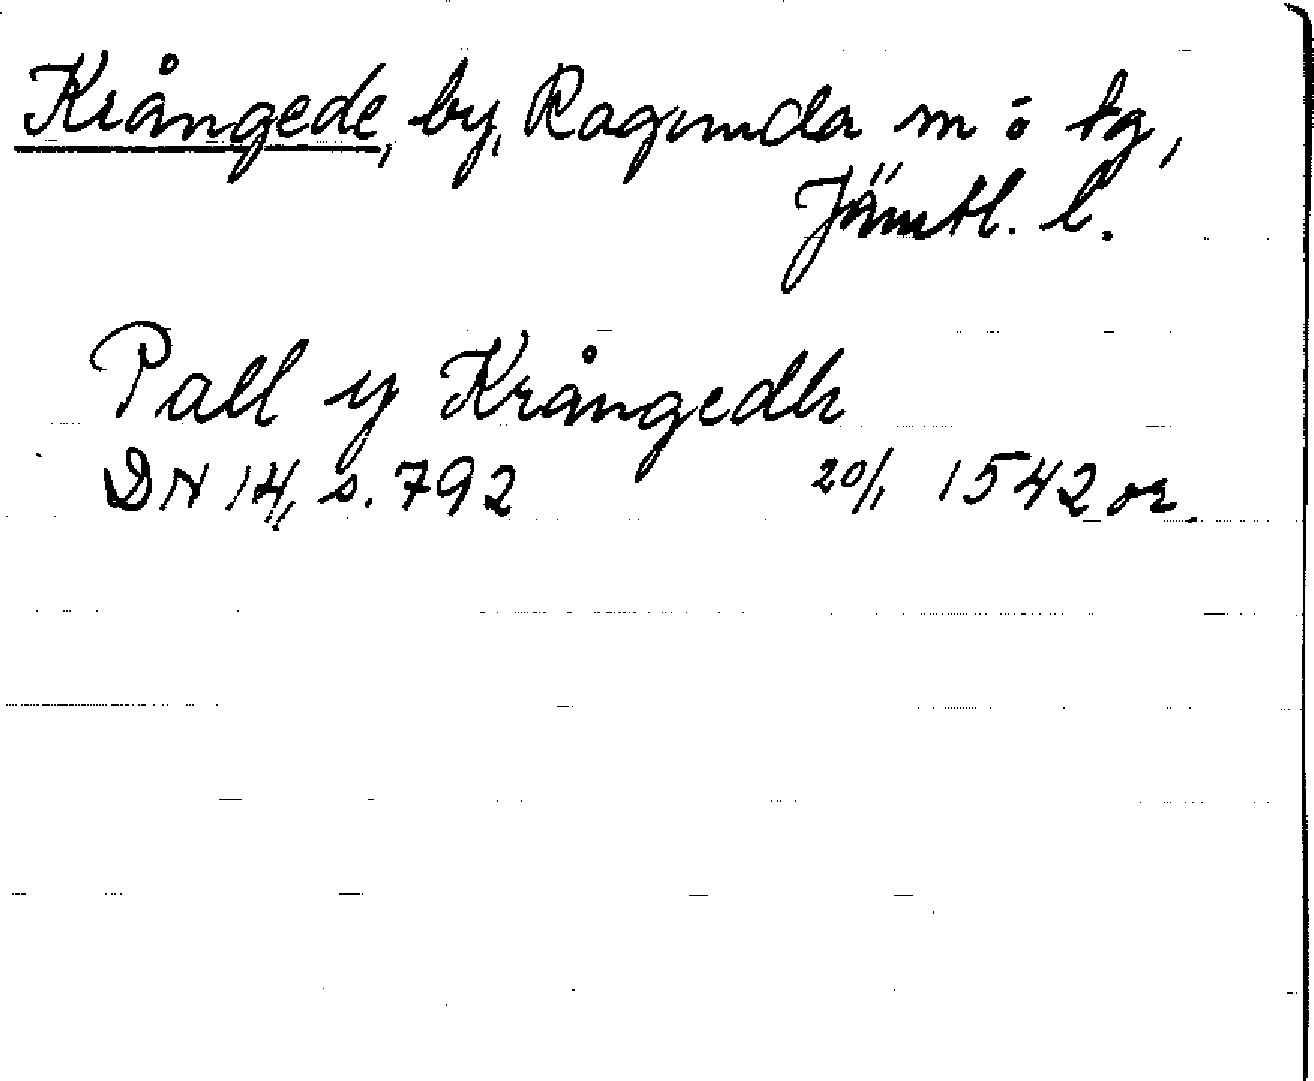 Krångede, by, Ragunda sn o tg,
Jämtl. l.
Pall y Krångedh
DN 14, s. 792 20/1 1542 or.